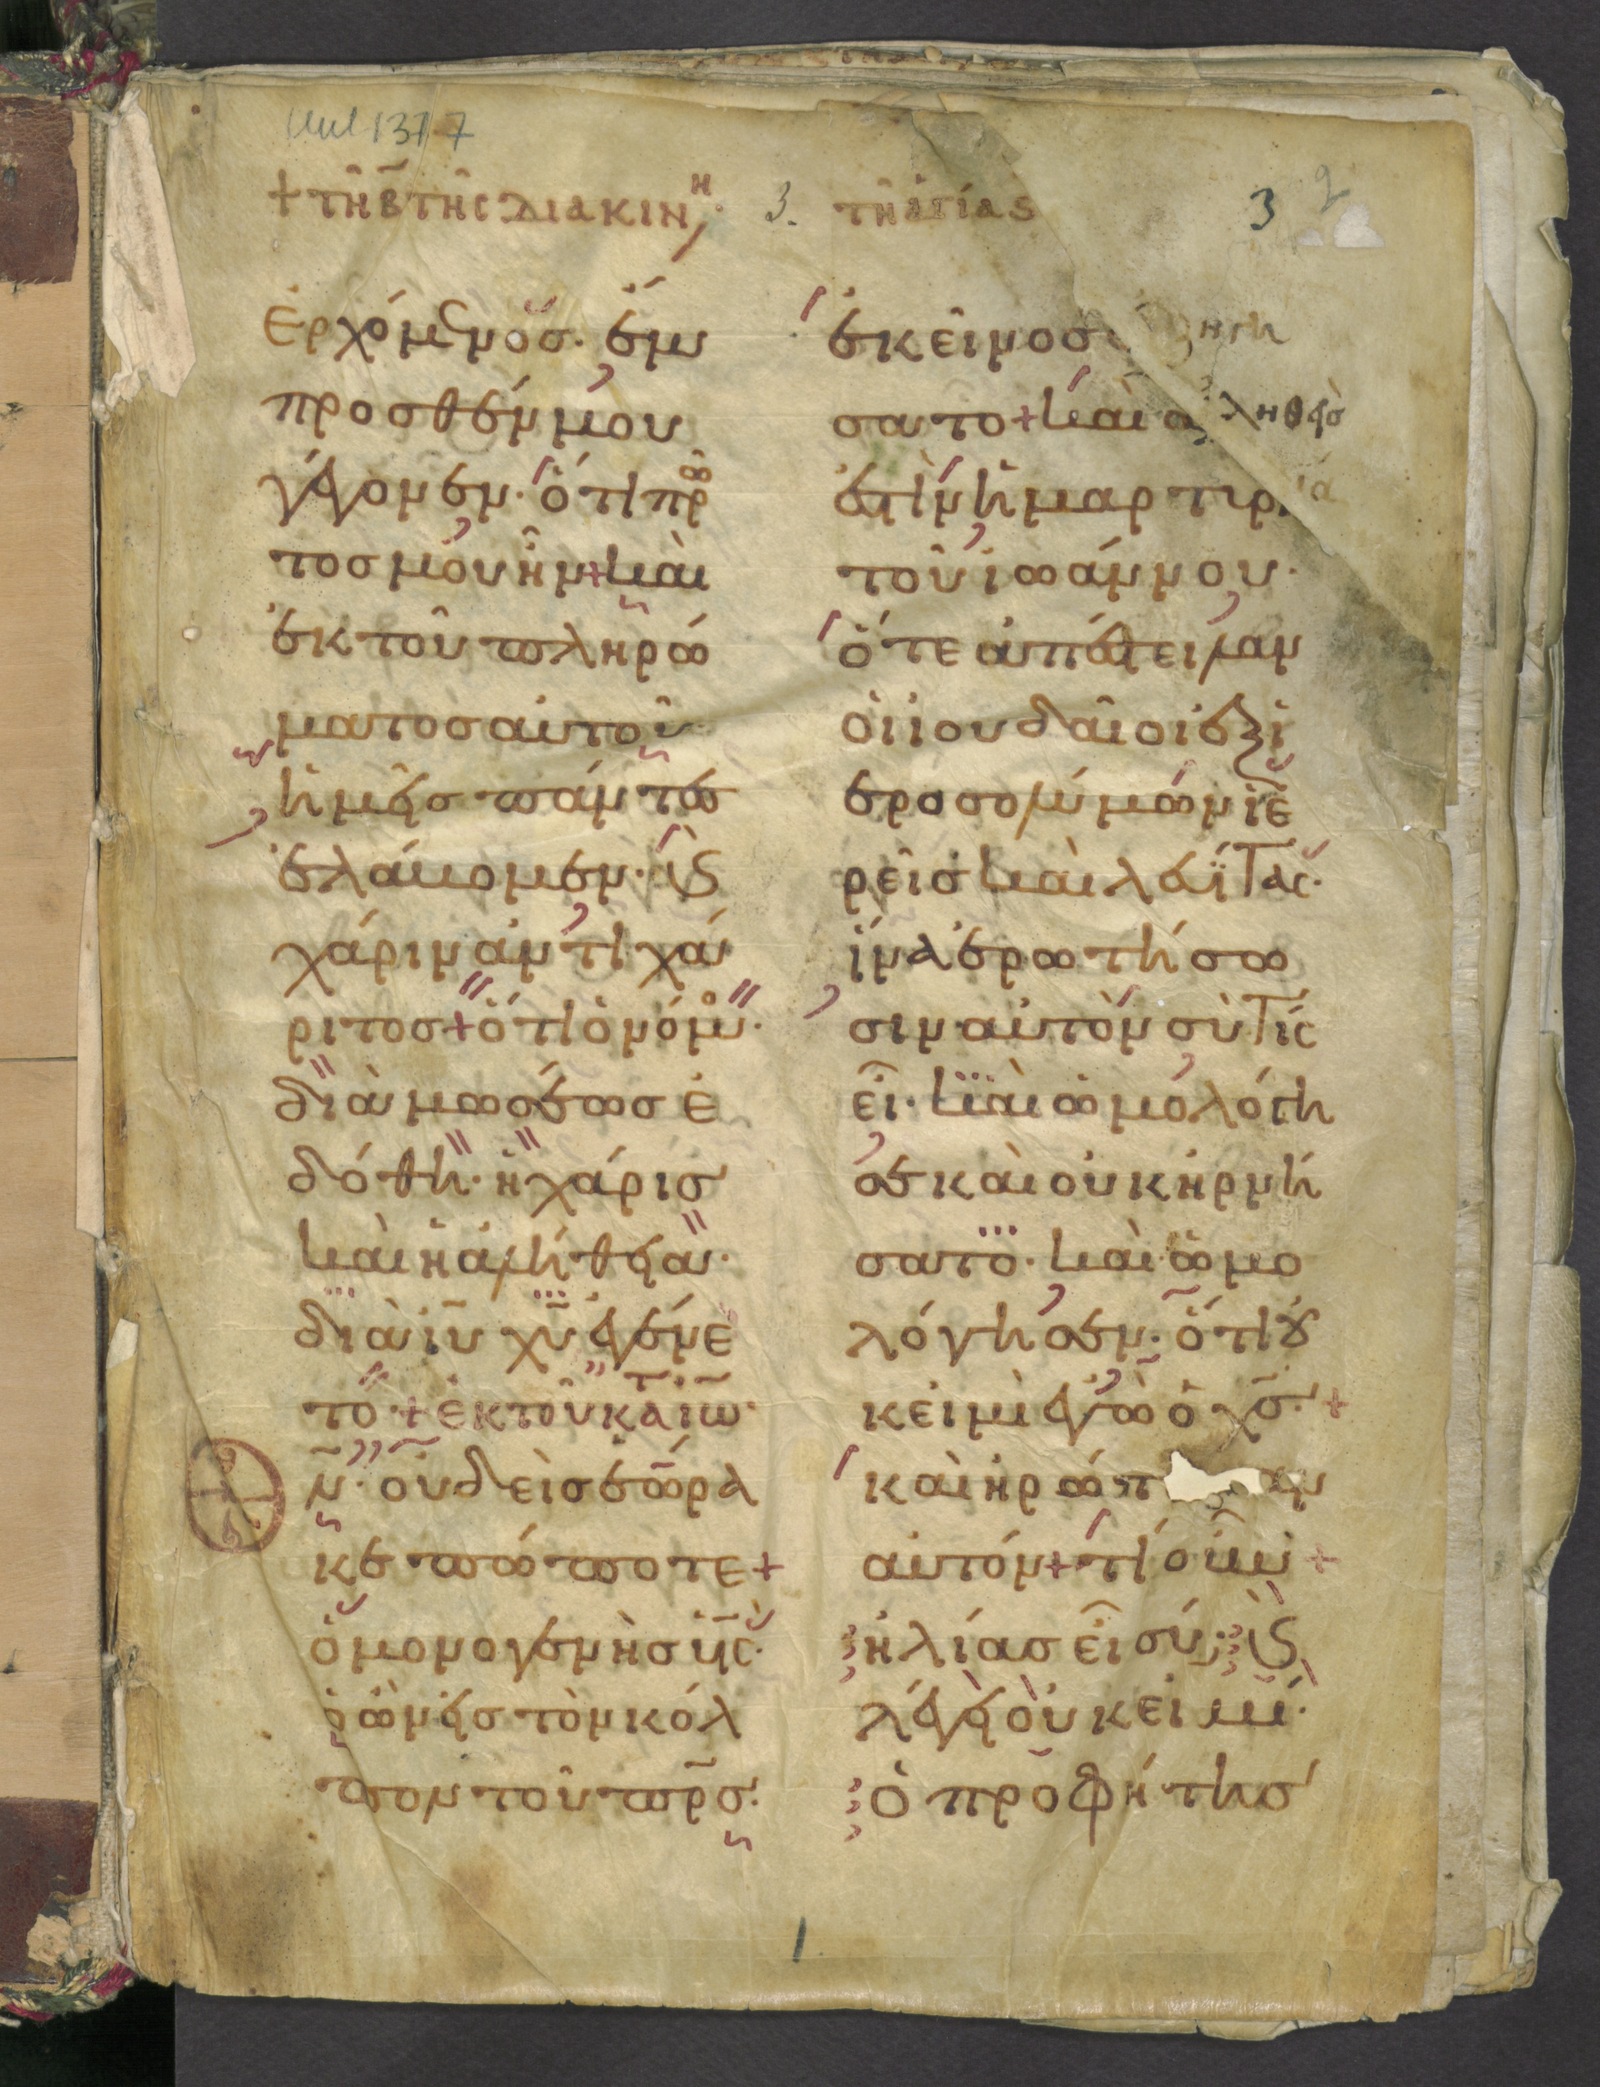 + τῆ β̄ τῆς διακινη 3. τῆ ἁγίας 3 2
ἐρχόμενος. ἔμ
προσθέν μου
γέγονεν. ὅτι πρῶ
τος μου ἦν + καὶ
ἐκ τοῦ πληρώ
ματος αὐτοῦ
ἡμεῖς πάντ(ες)
ἐλάβομεν. κ(αὶ)
χάριν ἀντὶ χά
ριτος + ὅτι ὁ νόμο(ς).
διὰ μωσέως ἐ
δόθη. ἡ χάρις
καὶ ἡ ἀλήθεια.
διὰ ἰῦ χῦ ἐγένε
το + ἐκ τοῦ κατὰ ἰω
Θν̄. οὐδεὶς ἑώρα
κε πώποτε +
ὁ μονογενὴς ὑἱς.
ὁ ὢν εἰς τὸν κόλ
πον τοῦ π̄ρς.
ἐκεῖνος ἐξηγή
σατο + καὶ ἀληθὴσ
ἐστὶν ἡ μαρτυρία
τοῦ ἰωάννου.
ὅτε ἀπέστειλαν
οἱ ἰουδαῖοι ἐξ ἱ
εροσολύμων ἱε
ρεῖς καὶ λευΐτας.
ἵνα ἐρωτήσω
σιν αὐτόν σὺ τίς
εἶ. καὶ ὡμολόγη
σε καὶ οὐκ ἠρνή
σατο. καὶ ὡμο
λόγησεν. ὅτι οὐ
κ εἰμὶ ἐγὼ ὁ χς̄. +
καὶ ἠρώτησαν
αὐτόν + τί οὖν +
ἠλίας εἶ σύ; κ(αὶ)
λέγει οὐκ εἰμί.
ὁ προφήτης
1